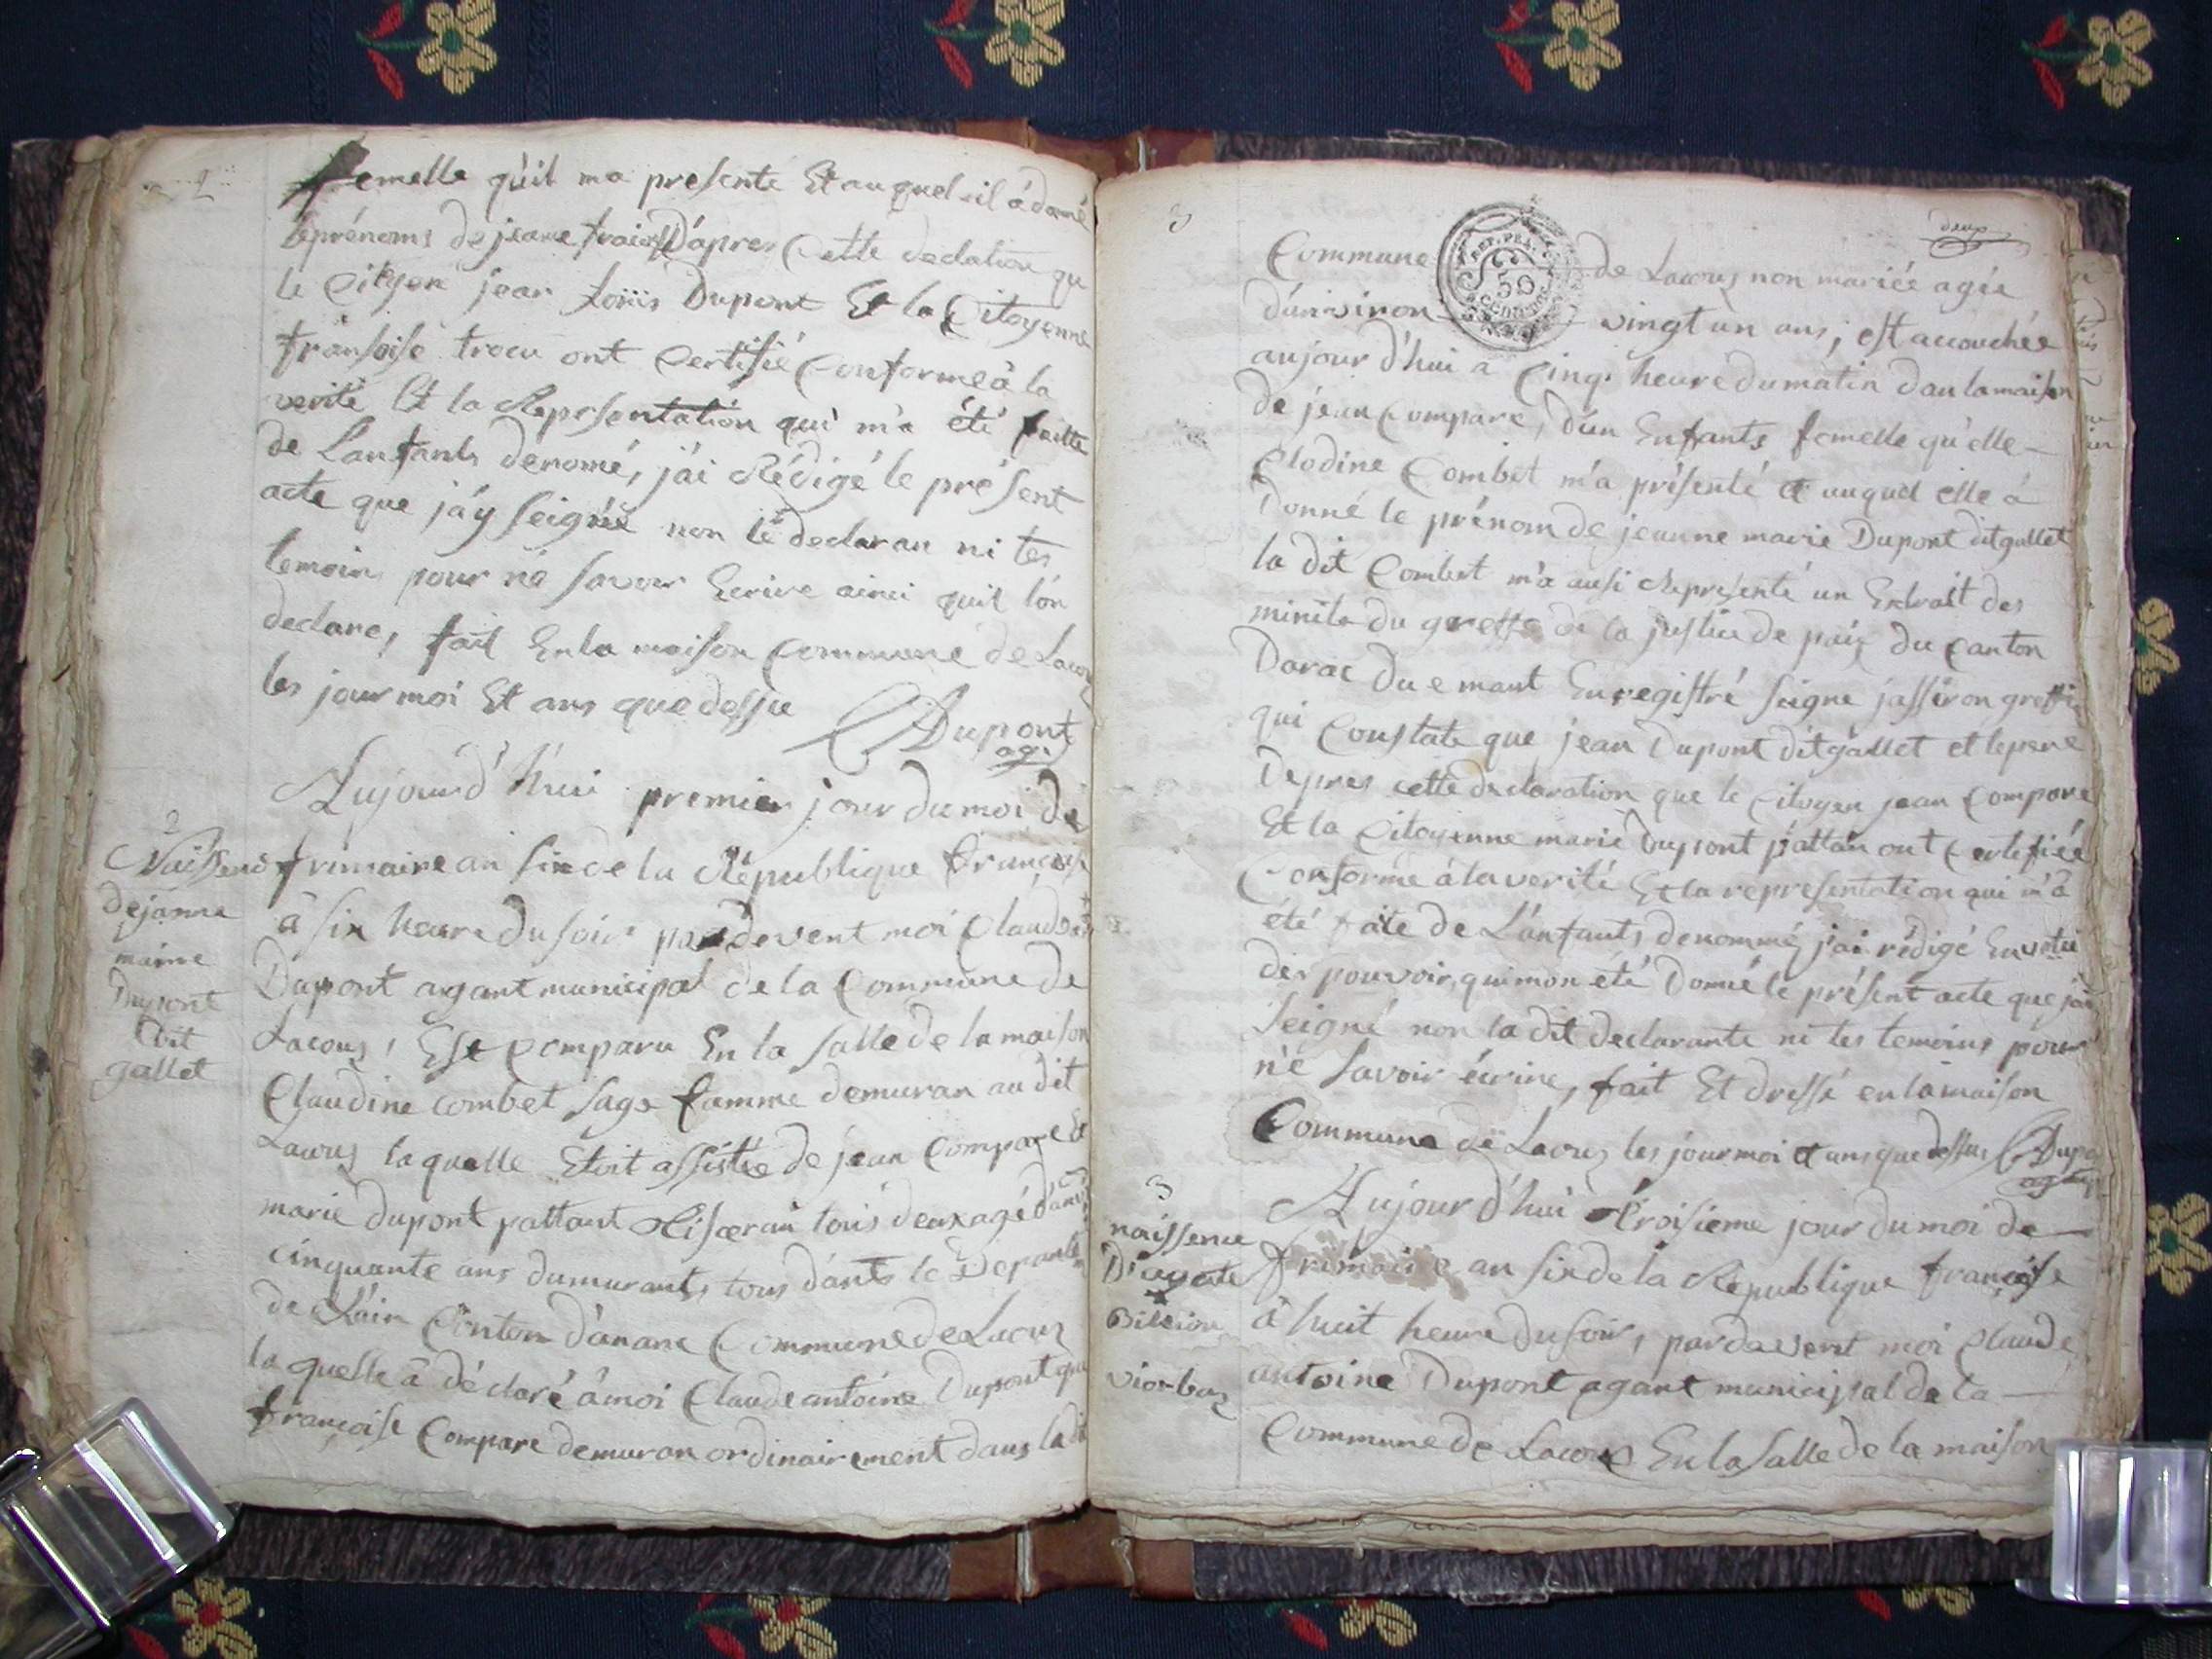 femelle qu'il ma presente Et auquel il á donné
les prénoms de jeane fraise D'apres Cette declation que
le Citoyen jean Loüis Dupont Et la Citoyenne
fransoise trocu ont Certifié Conforme à la
verité Et la Represontation qui m'a été faitte
de L'anfants denomé, j'ai Rédigé le présent
acte que j'ay seigné non le declaran ni tes
temoins pour né savoir Ecrire ainci quil l'on
declare, fait En la maison Commune de Lacoux
les jour moi Et ans que dessu
CDupont
agt
2
Naissence
de janne
marie
Dupont
dit
gallet
Aujourd'hui premier jour du moi de
frimaire an six de la République françoise
à six heure du soir par devent moi Claude
Dupont agant municipal de la Commune de
Lacoux, Est Comparu En la salle de la maison
Claudine combet sage famme demuran au dit
Lacoux laquelle Etoit assistée de jean Compare Et
marie dupont pattant tous deux agé
cinquante ans dumurants tous dants le Depart
de L'ain Canton d'arane Commune de Lacoux
laquelle à déclaré à moi Claude antoine Dupont que
françoise Compare demuran ordinairement dans la dit
3
deux
REP. FRA.
50
CENTIMES
Commune de Lacoux non mariée agée
d'anviron vingt un ans, est acouchée
aujour d'hui a Cinq heure du matin dan la maison
de jean Compare, d'un Enfants femelle qu'elle
Clodine Combet m'a présenté et auquel elle à
Donné le prénom de jeanne marie Dupont dit gallet
la dit Combet m'a ausi Représenté un Extrait des
minite du greffe de la justice de paix du Canton
Darac Duemant Enregistré seigne jasseron greffi
qui Constate que jean Dupont dit gallet et le pere
Depres cette declaration que le Citoyen jean Compare
Et la Citoyenne marie Dupont pattan ont Certifiée
Conforme à la verité Et la representation qui m'à
été faite de L'anfants denommé j'ai rédigé En vertu
des pouvoir qui mon été Donné le présent acte que jai
Seigné non la dit declarante ni les temoins pour
né savoir écrire, fait Et dressé en la maison
Commune de Lacoux les jour moi et ans que dessus CDupo
agt
3
naissence
D'agate
Billion
viorbaz
Aujourd'hui troisieme jour du moi de
frimaire an six de la Republique françoise
à huit heure du soir, par davent moi Claude
antoine Dupont agant municipal de la
Commune de Lacoux En la salle de la maison